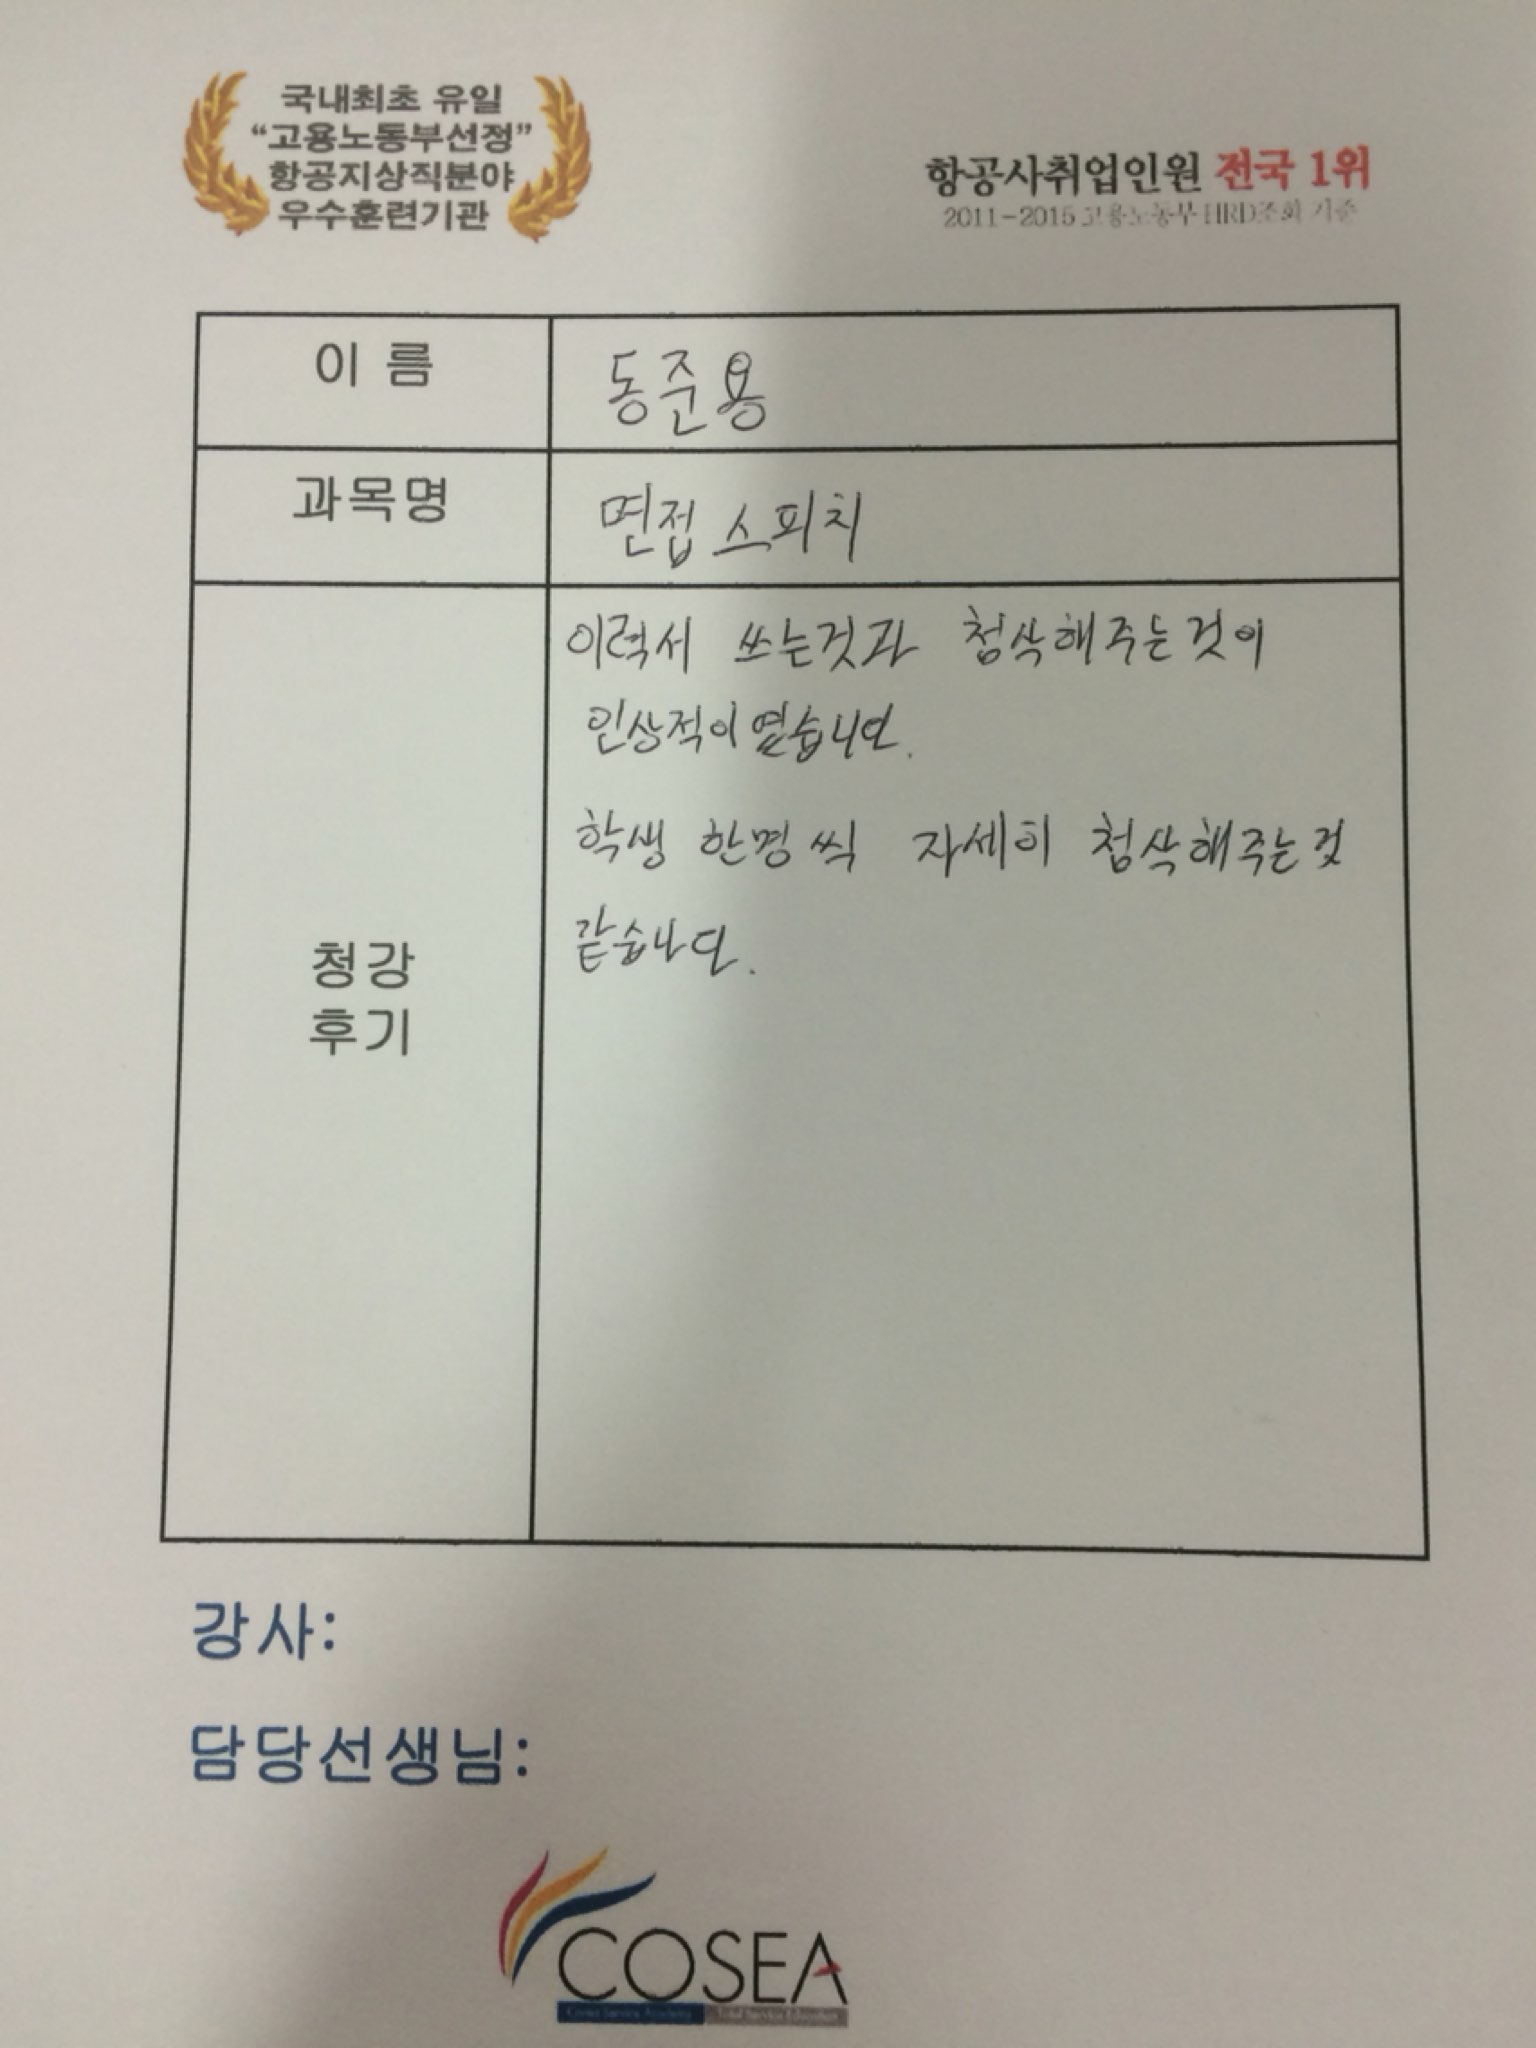 국내최초 유일
“고용노동부선정”
항공지상직분야
우수훈련기관
항공사취업인원 전국 1위
2011-2015 고용노동부 HRD조회 기준
이 름
동준용
과목명
면접 스피치
청강
후기
이력서 쓰는것과 첨삭해주는것이
인상적이였습니다.
학생 한명 씩 자세히 첨삭해주는것
같습니다.
강사:
담당선생님:
COSEA
Corea Service Academy Total Service Education